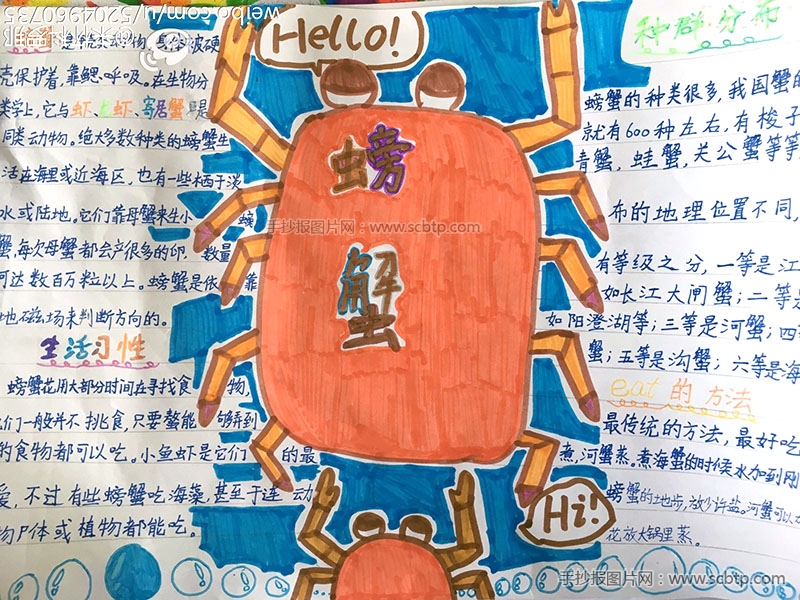 weibo.com/u/5204960735
Hello!
是甲壳类动物,身体被硬
壳保护着,靠鳃呼吸。在生物分
类学上,它与虾、龙虾、寄居蟹是
同类动物。绝大多数种类的螃蟹生
活在海里或近海区,也有一些栖于淡
水或陆地。它们靠母蟹来生小螃
蟹,每次母蟹都会产很多的卵,数量
可达数百万粒以上。螃蟹是依靠
地磁场来判断方向的。
生活习性
螃蟹花用大部分时间在寻找食物,
们一般并不挑食,只要螯能够弄到
的食物都可以吃。小鱼虾是它们的最
爱,不过有些螃蟹吃海藻,甚至于连动
物尸体或植物都能吃。
螃
蟹
手抄报图片网:www.scbtp.com
种群分布
螃蟹的种类很多,我国蟹的
就有600种左右,有梭子
青蟹,蛙蟹,关公蟹等等
布的地理位置不同,
有等级之分,一等是江
如长江大闸蟹;二等是
如阳澄湖等;三等是河蟹;四
蟹;五等是沟蟹;六等是海
eat的方法
最传统的方法,最好吃
煮,河蟹蒸。煮海蟹的时候水加到刚
螃蟹的地步,放少许盐。河蟹可以
花放大锅里蒸。
Hi!
手抄报图片网:www.scbtp.com